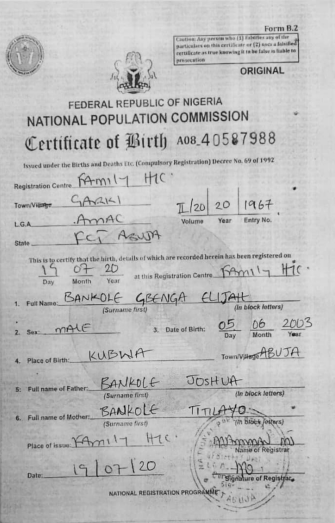 Form B.2
Caution: Any person who (1) falsifies any of the
particulars on this certificate or (2) uses a falsified
certificate as true knowing it to be false is liable to
prosecution
ORIGINAL
FEDERAL REPUBLIC OF NIGERIA
NATIONAL POPULATION COMMISSION
Certificate of Birth A08 40587988
Issued under the Births and Deaths Etc. (Compulsory Registration) Decree No. 69 of 1992
Registration Centre FAmily HTC.
Town/Village GARKI
L.G.A. AMAC II/20 20 1967
Volume Year Entry No.
State FCT ABUJA
This is to certify that the birth, details of which are recorded herein has been registered on
19 07 20 at this Registration Centre FAmily HTC
Day Month Year
1. Full Name: BANKOLE GBENGA ELIJAH
(Surname first) (in block letters)
2. Sex: mALE 3. Date of Birth: 05 06 2003
Day Month Year
4. Place of Birth: KUBWA Town/Village ABUJA
5: Full name of Father: BANKOLE JOSHUA
(Surname first) (in block letters)
6. Full name of Mother: BANKOLE TITILAYO
(Surname first) (in block letters)
Place of issue: FAmily HTC
Name of Registrar
Date: 19/07/20
Signature of Registrar
NATIONAL REGISTRATION PROGRAMME
ABUJA